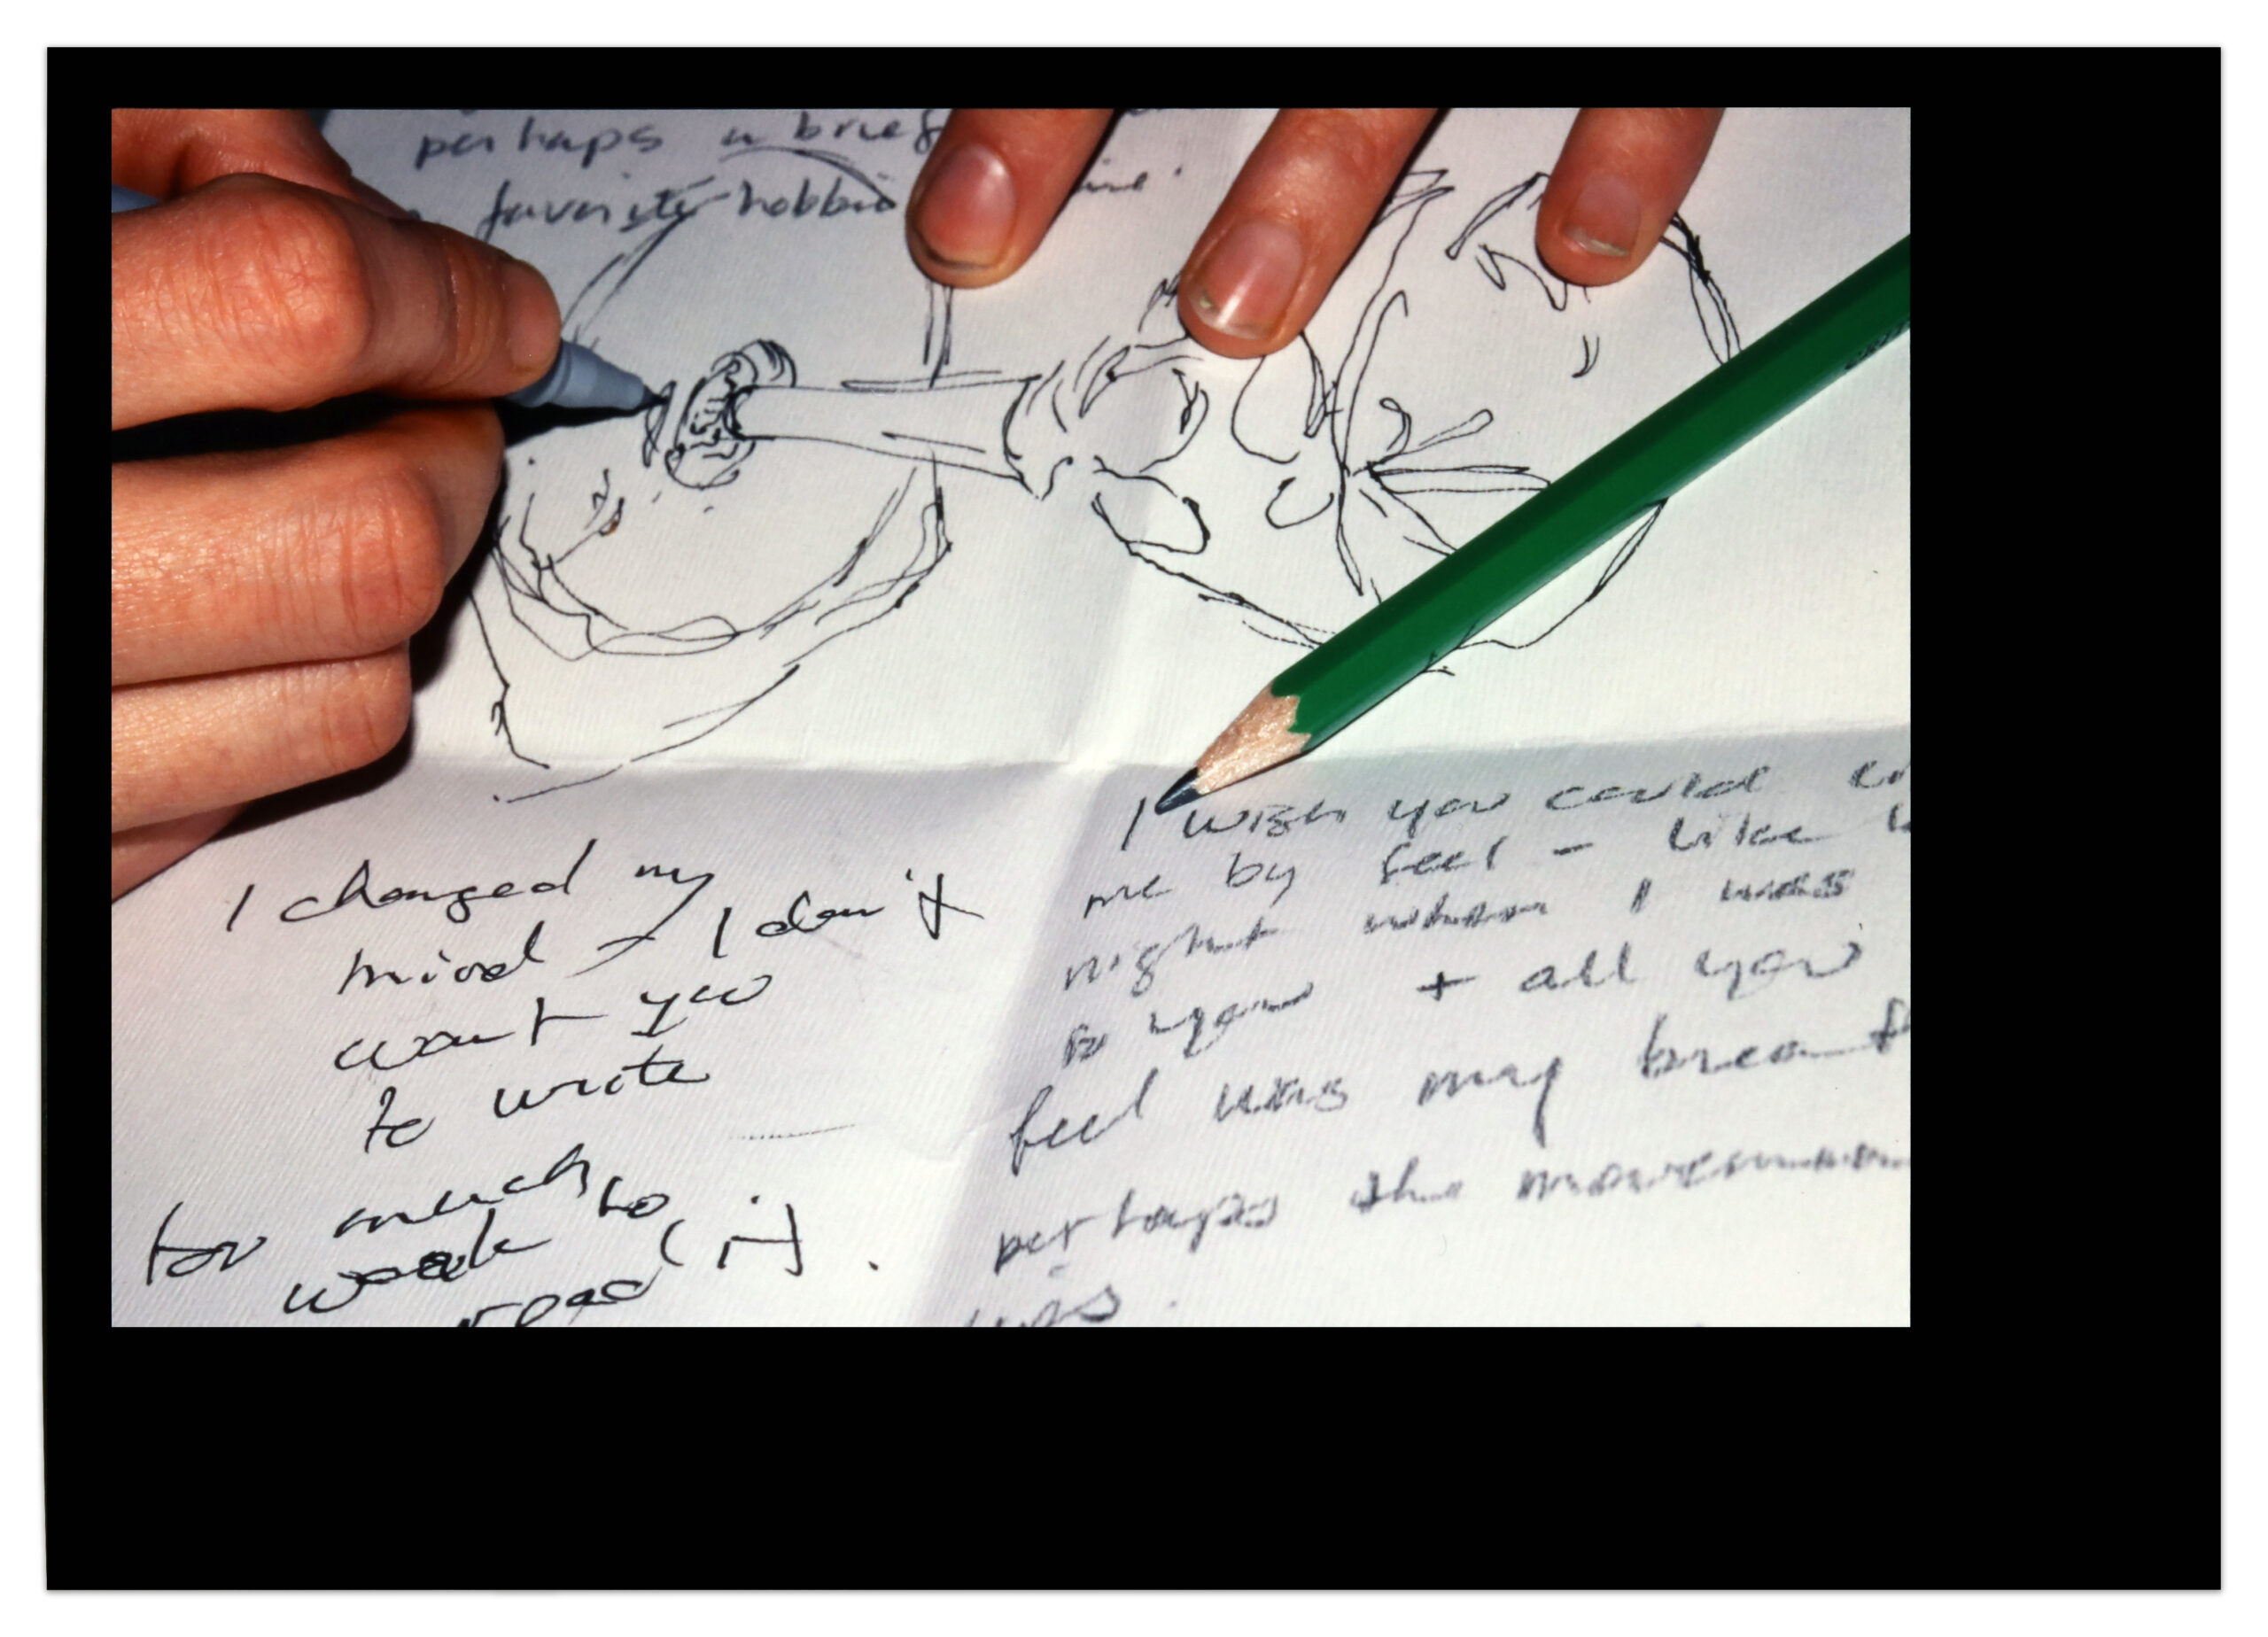 perhaps a brief
favorite hobbie
I changed my
mind - I don't
want you
to write
too much
weak to
read (it).
I wish you could
me by feel - like
night when I was
to you + all you
feel was my breath
perhaps the movement
was.